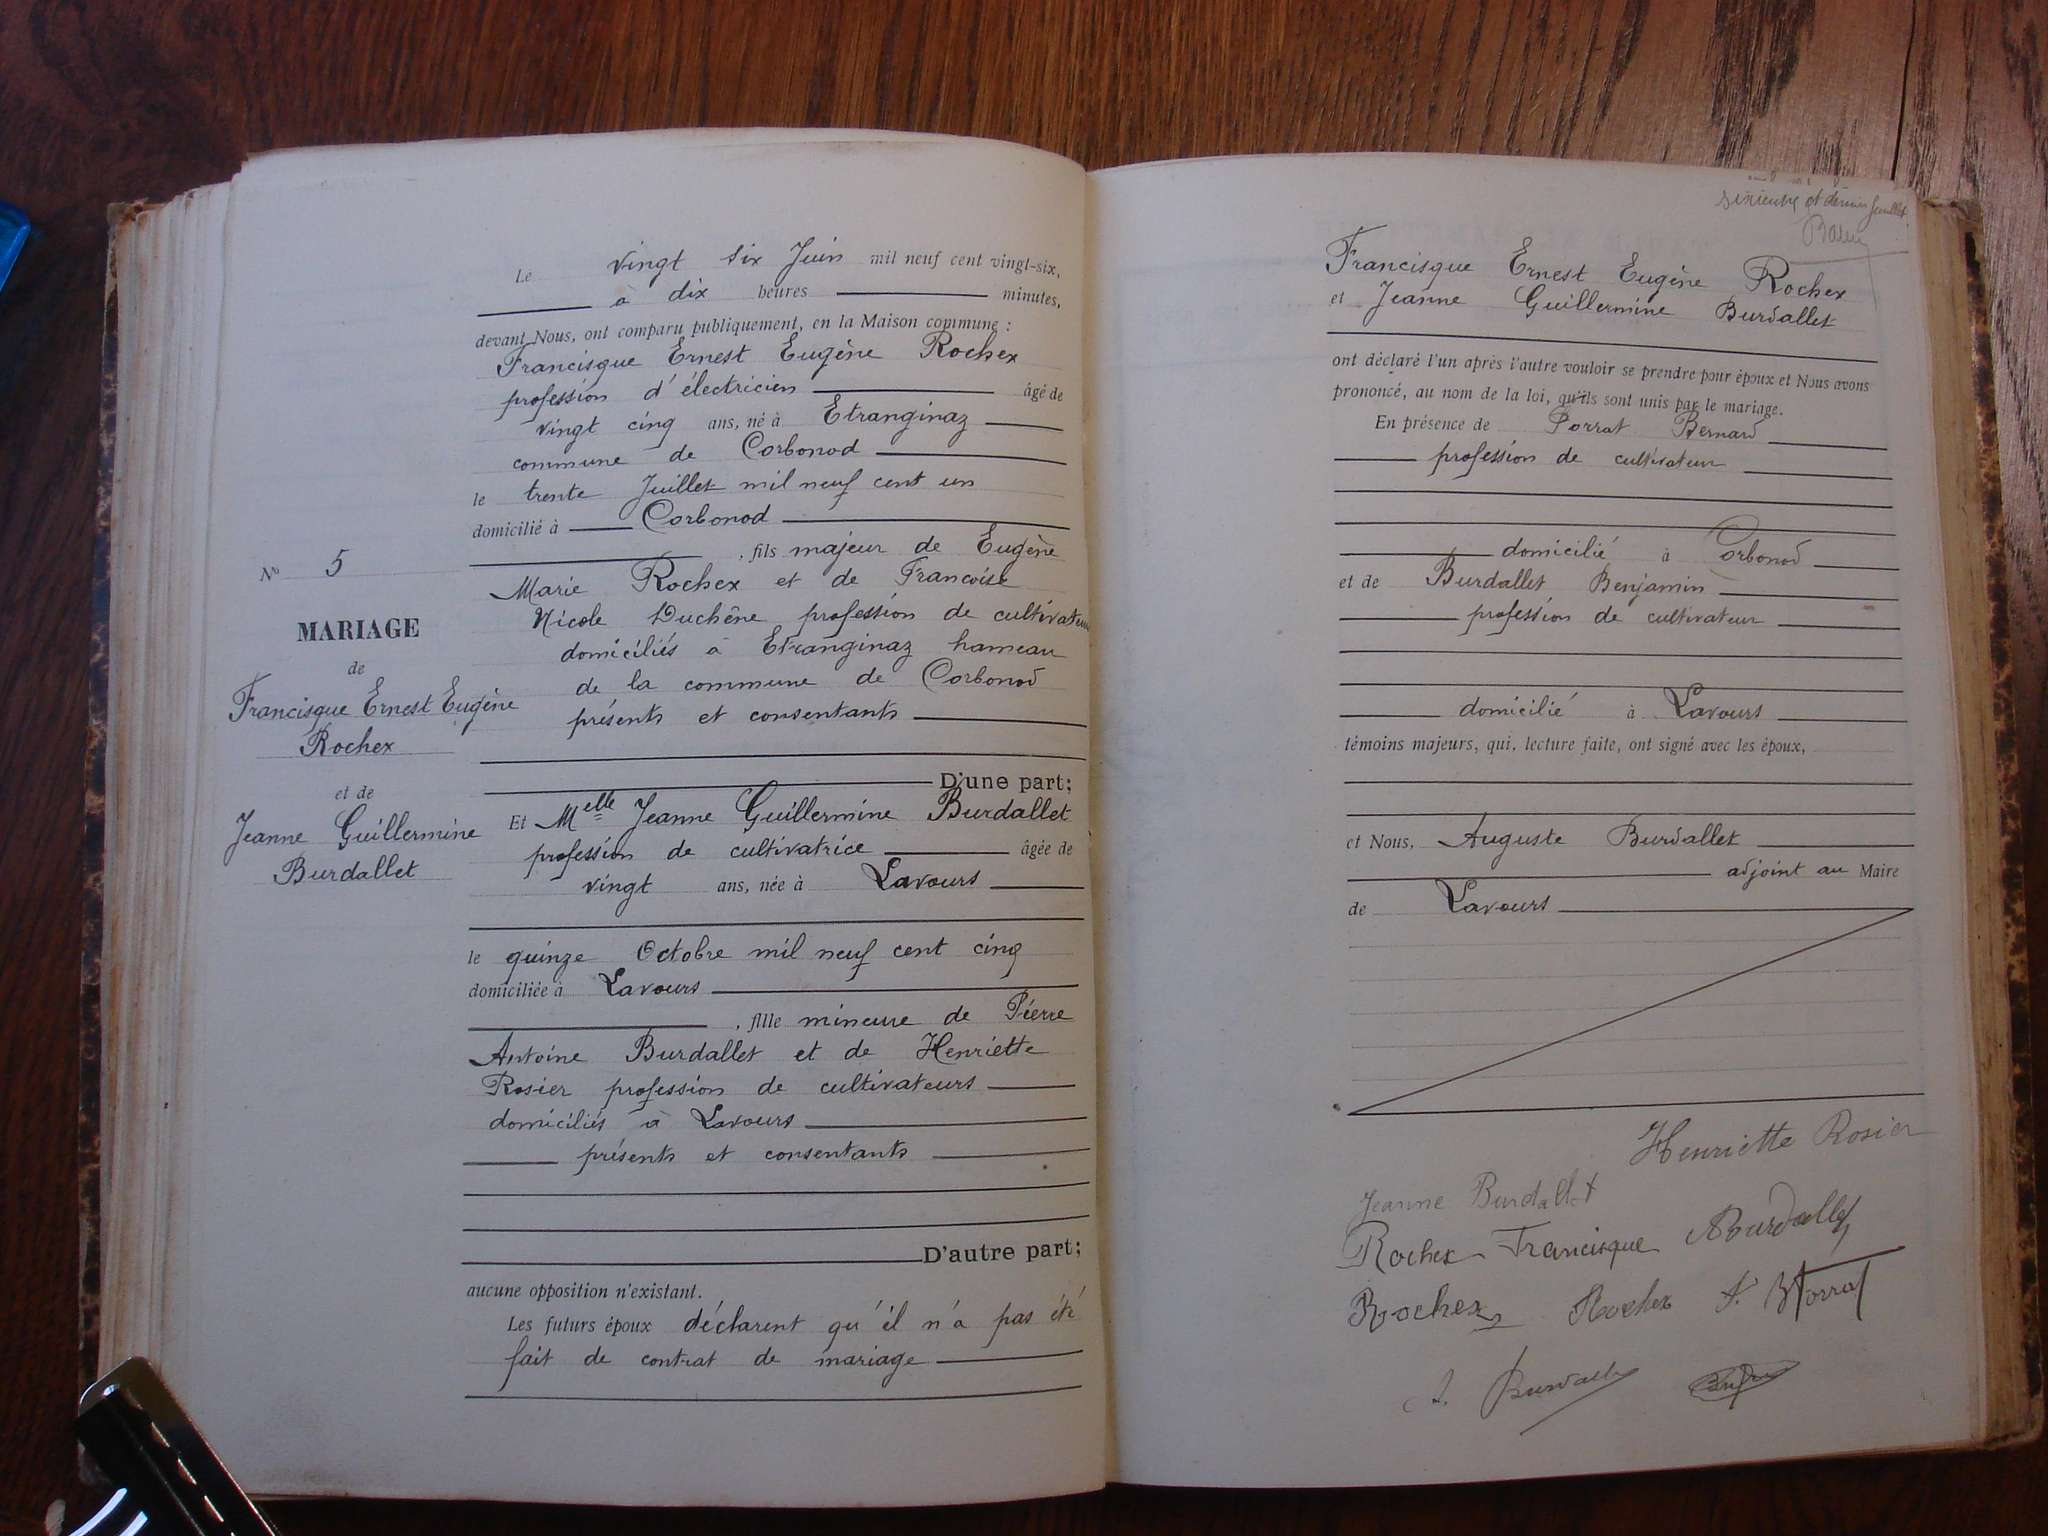 Le vingt six Juin mil neuf cent vingt-six,
à dix heures minutes,
devant Nous, ont comparu publiquement, en la Maison commune :
Francisque Ernest Eugène Rochex
profession d'électricien âgé de
vingt cinq ans, né à Etranginaz
commune de Corbonod
le trente Juillet mil neuf cent un
domicilié à Corbonod
, fils majeur de Eugène
Marie Rochex et de Francoise
Nicole Duchêne profession de cultivateurs
domiciliés à Etranginaz hameau
de la commune de Corbonod
présents et consentants
D'une part;
Et Melle Jeanne Guillermine Burdallet
profession de cultivatrice âgée de
vingt ans, née à Lavours
le quinze Octobre mil neuf cent cinq
domiciliée à Lavours
, fille mineure de Pierre
Antoine Burdallet et de Henriette
Rosier profession de cultivateurs
domiciliés à Lavours
présents et consentants
D'autre part;
aucune opposition n'existant.
Les futurs époux déclarent qu'il n'a pas été
fait de contrat de mariage
No 5
MARIAGE
de
Francisque Ernest Eugène
Rochex
et de
Jeanne Guillermine
Burdallet
sixième et dernier feuillet
Francisque Ernest Eugène Rochex
et Jeanne Guillermine Burdallet
ont déclaré l'un après l'autre vouloir se prendre pour époux et Nous avons
prononcé, au nom de la loi, qu'ils sont unis par le mariage.
En présence de Porrat Bernard
profession de cultivateur
domicilié à Corbonod
et de Burdallet Benjamin
profession de cultivateur
domicilié à Lavours
témoins majeurs, qui, lecture faite, ont signé avec les époux,
et Nous, Auguste Burdallet
adjoint au Maire
de Lavours
Henriette Rosier
Jeanne Burdallet
Rochex Francisque Burdallet
Rochex Rochex Porrat
Burdallet